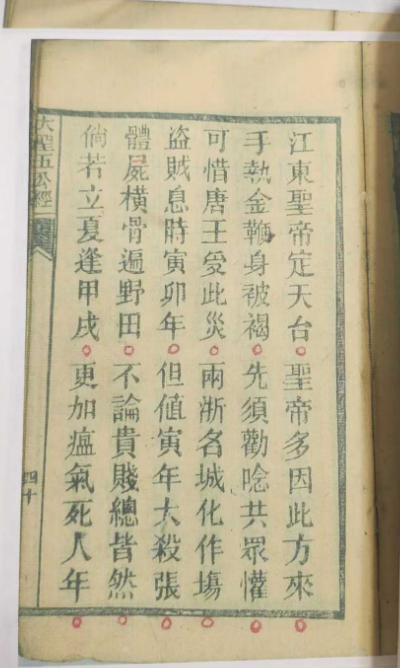 江東聖帝定天台。聖帝多因此方來。
手執金鞭身被褐。先須勸唸共眾懽。
可惜唐王受此災。兩浙名城化作塲。
盜賊息時寅卯年。但值寅年大殺張。
體屍橫骨遍野田。不論貴賤總皆然。
倘若立夏逢甲戌。更加瘟氣死人年。
大聖五公經
四十